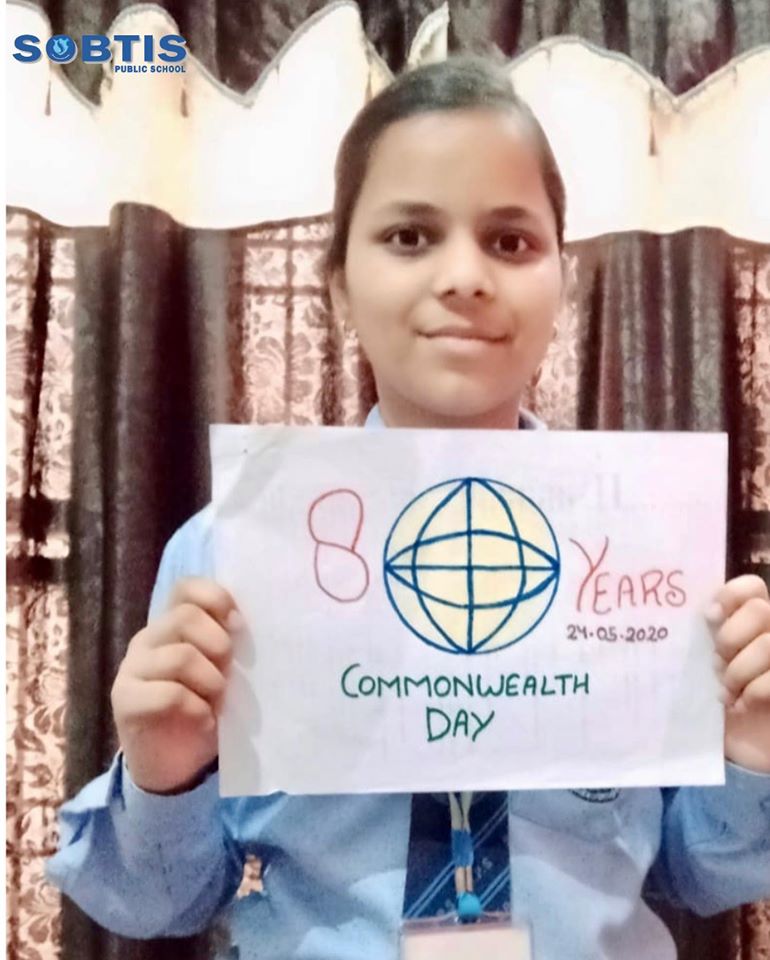 SOBTIS
PUBLIC SCHOOL
8 YEARS
24.05.2020
COMMONWEALTH
DAY